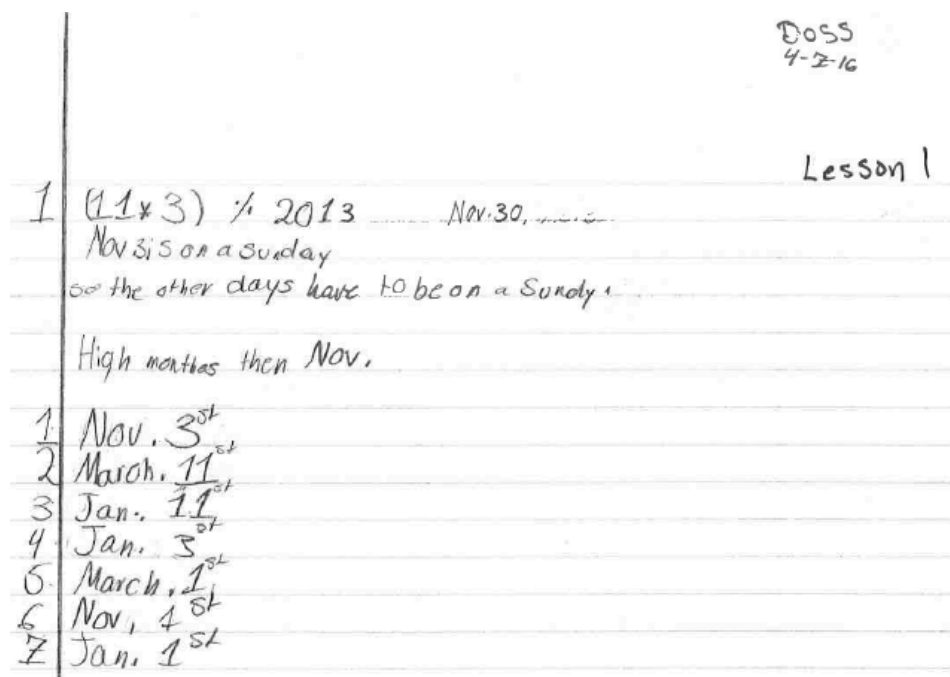 Doss
4-7-16
Lesson 1
1 (11*3) % 2013 ........ Nov.30, ........
Nov 3 is on a sunday
so the other days have to be on a Sundy.
High monthas then Nov.
1 Nov. 3st
2 March. 11st
3 Jan. 11st
4 Jan. 3st
5 March. 1st
6 Nov, 1st
7 Jan. 1st